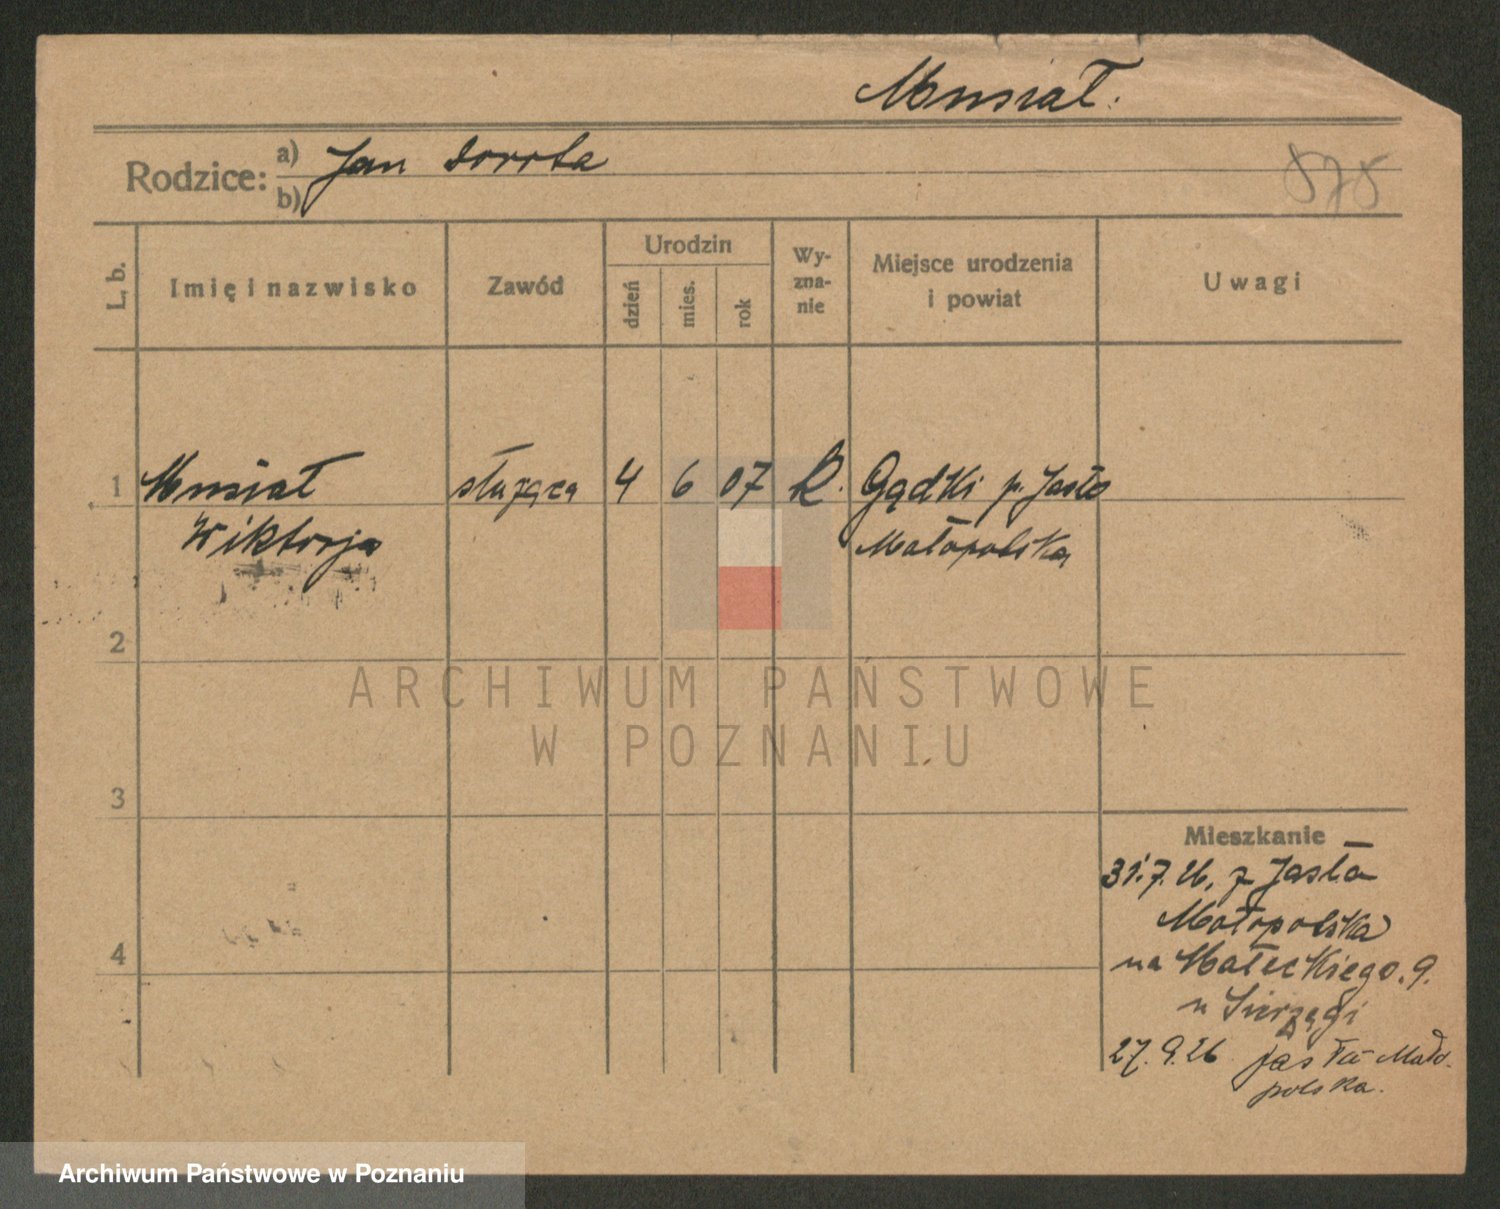 Musiał.
Rodzice: a) Jan Dorota
b)
575
L. b.
Imię i nazwisko
Zawód
Urodzin
dzień
mies.
rok
Wy-
zna-
nie
Miejsce urodzenia
i powiat
Uwagi
1 Musiał służąca 4 6 07 R. Gądki p. Jasło
Wiktorja Małopolska
2
3
4
Mieszkanie
31.7.26. z Jasła
Małopolska
na Małeckiego. 9.
u
27.9.26 Jasła Mało-
polska.
ARCHIWUM PAŃSTWOWE
W POZNANIU
Archiwum Państwowe w Poznaniu